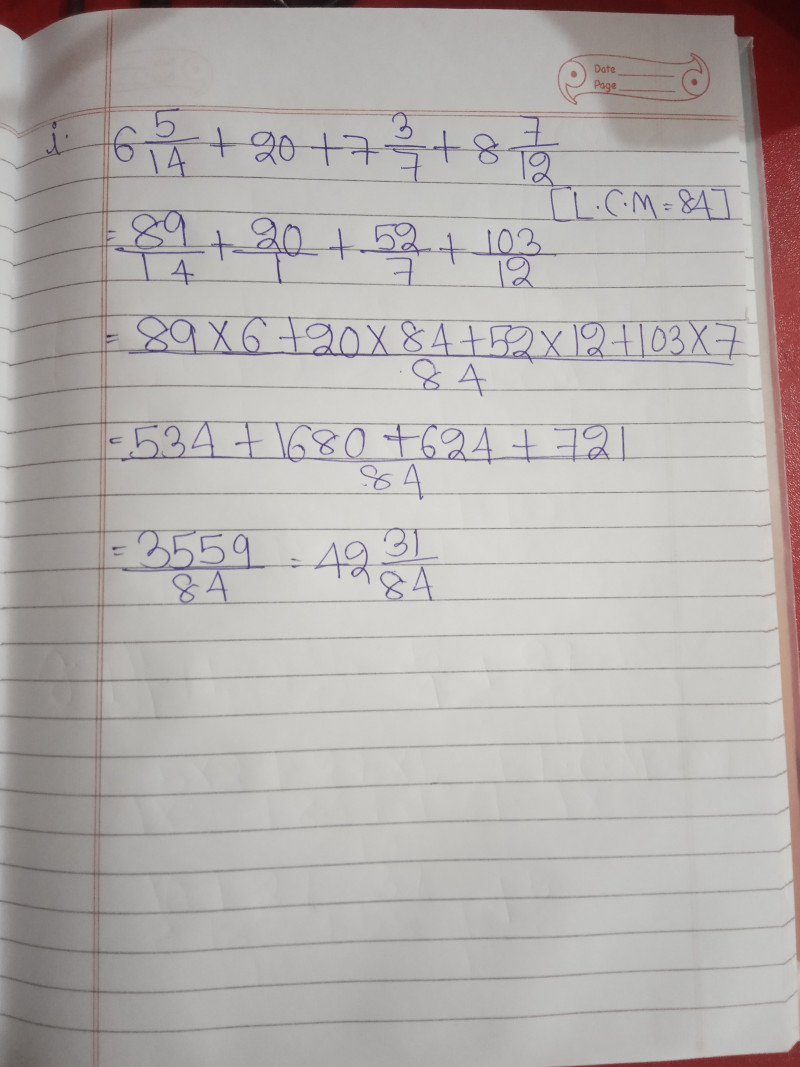 Date
Page
i. 6 5/14 + 20 + 7 3/7 + 8 7/12
[L.C.M = 84]
= 89/14 + 20/1 + 52/7 + 103/12
= 89 × 6 + 20 × 84 + 52 × 12 + 103 × 7 / 84
= 534 + 1680 + 624 + 721 / 84
= 3559/84 = 42 31/84